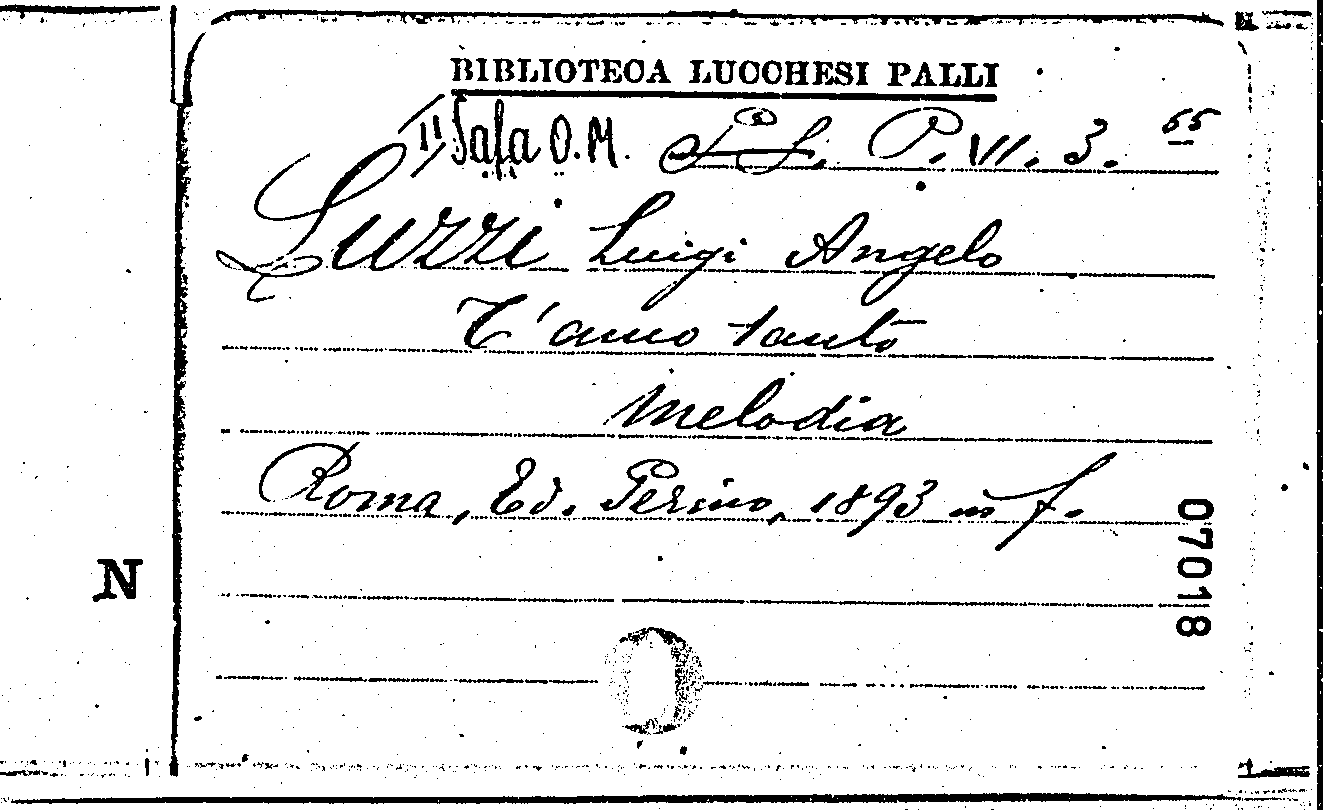 BIBLIOTECA LUCCHESI PALLI
II Sala O. M. P. VI. 3. 55
Luzzi Luigi Angelo
T'amo tanto
Melodia
Roma, Ed. Perino, 1893 in f.
07018
N